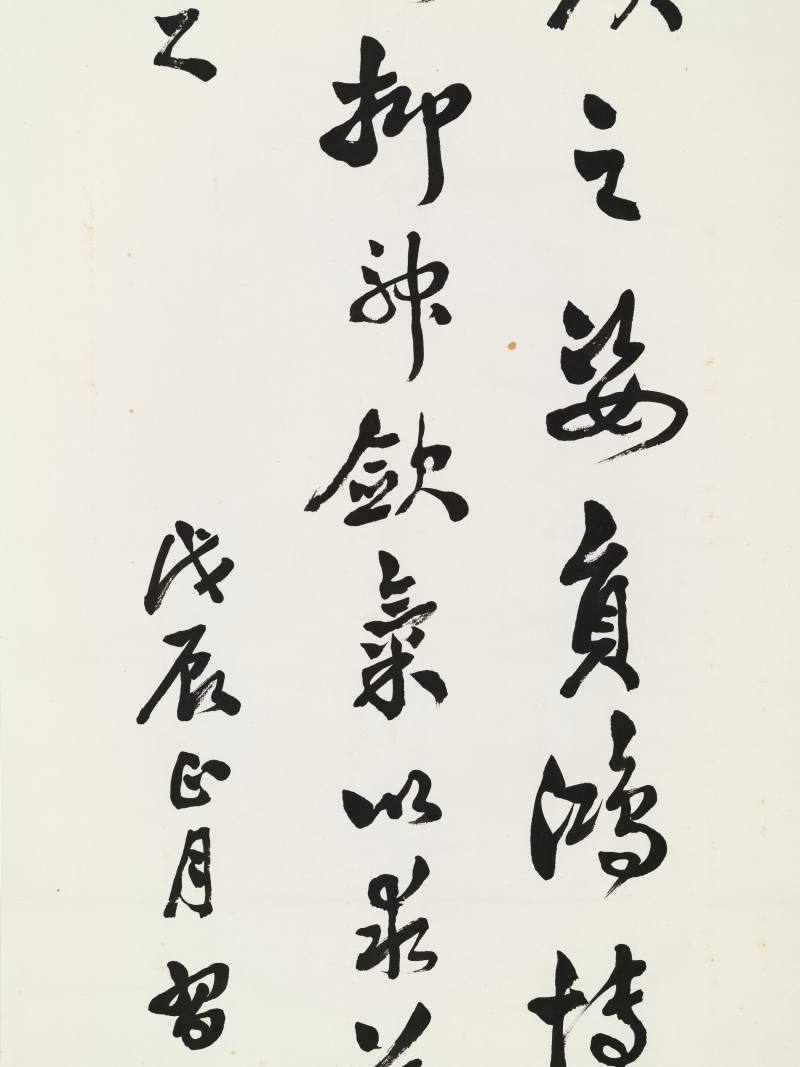 之姿負鴻博
抑神歛氣以求
戊辰正月習